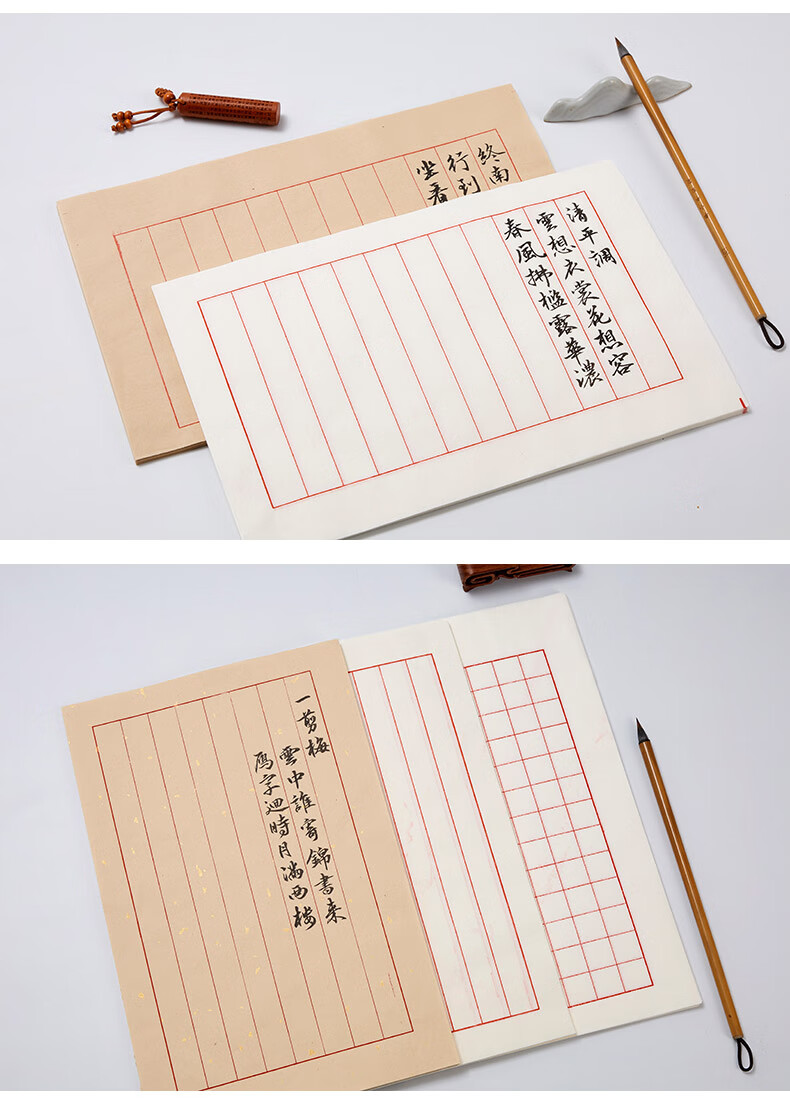 終南
行到
坐看
清平調
雲想衣裳花想容
春風拂檻露華濃
一剪梅
雲中誰寄錦書来
雁字迴時月滿西樓